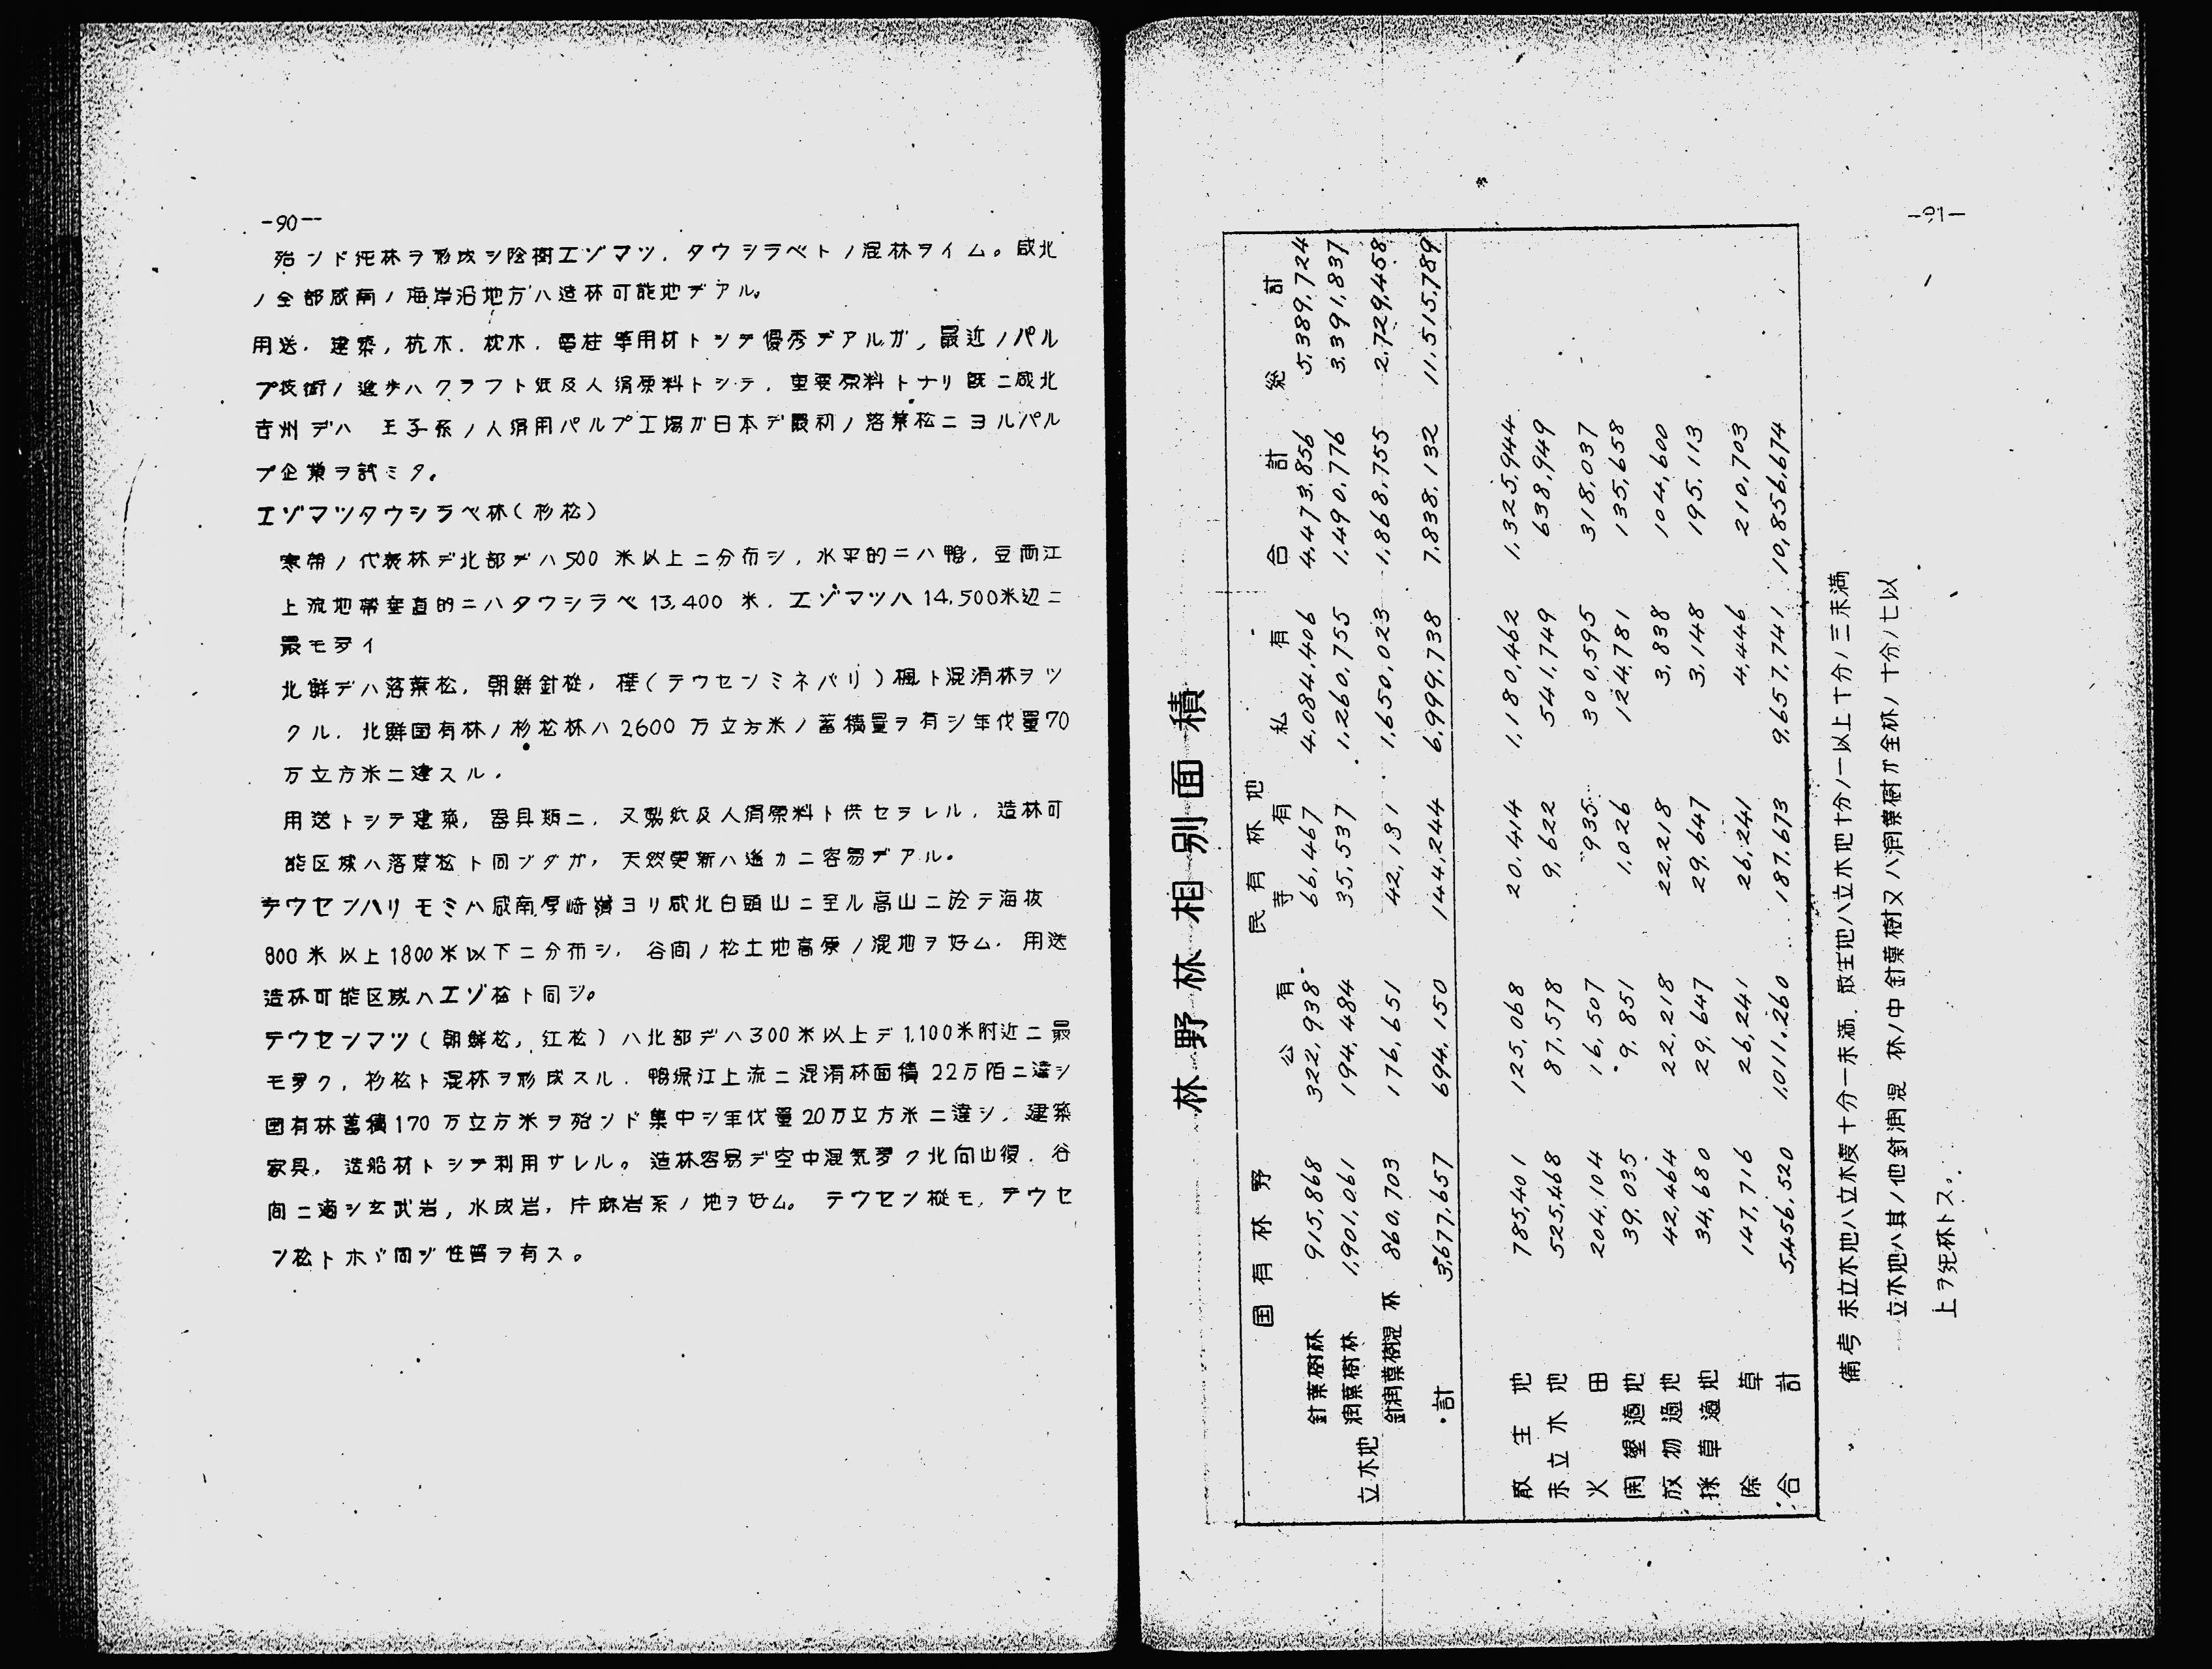 -90-
殆ンド純林ヲ形成シ陰樹エゾマツ．タウシラベトノ混林ヲイム。咸北
ノ全部咸南ノ海岸沿地方ハ造林可能地デアル。
用送．建築，杭木．枕木．電柱等用材トシテ優秀デアルガ，最近ノパル
プ技術ノ進歩ハクラフト紙及人絹原料トシテ．重要原料トナリ既ニ咸北
吉州デハ 王子系ノ人絹用パルプ工場ガ日本デ最初ノ落葉松ニヨルパル
プ企業ヲ試ミタ。
エゾマツタウシラベ林（杉松）
寒帯ノ代表林デ北部デハ500 米以上ニ分布シ，水平的ニハ鴨，豆両江
上流地帯垂直的ニハタウシラベ 13,400 米．エゾマツハ 14,500米辺ニ
最モ多イ
北鮮デハ落葉松，朝鮮針樅，樺（テウセンミネバリ）楓ト混淆林ヲツ
クル．北鮮国有林ノ杉松林ハ 2600 万立方米ノ蓄積量ヲ有シ年伐量70
万立方米ニ達スル．
用送トシテ建築，器具類ニ．又製紙及人絹原料ト供セラレル．造林可
能区域ハ落葉松ト同ジダガ，天然更新ハ遙カニ容易デアル。
テウセンハリモミハ咸南厚峙嶺ヨリ咸北白頭山ニ至ル高山ニ於テ海抜
800 米 以上 1800 米以下ニ分布シ．谷間ノ松土地高原ノ混地ヲ好ム．用送
造林可能区域ハエゾ松ト同ジ。
テウセンマツ（朝鮮松，江松）ハ北部デハ300 米以上デ 1,100米附近ニ最
モ多ク，杉松ト混林ヲ形成スル．鴨緑江上流ニ混淆林面積 22万陌ニ達シ
国有林蓄積170 万立方米ヲ殆ンド集中シ年伐量20万立方米ニ達シ，建築
家具，造船材トシテ利用サレル。造林容易デ空中混気多ク北向山復．谷
間ニ適シ玄武岩，水成岩，片麻岩系ノ地ヲ好ム。 テウセン樅モ，テウセ
ン松トホゞ同ジ性質ヲ有ス。
-91-
林野林相別面積
国有林野 民有林地 合計 総計
公有 寺有 私有
立木地
針葉樹林 915,868 322,938 66,467 4,084,406 4,473,856 5,389,724
潤葉樹林 1,901,061 194,484 35,537 1,260,755 1,490,776 3,391,837
針潤葉樹混林 860,703 176,651 42,181 1,650,023 1,868,755 2,729,458
計 3,677,657 694,150 144,244 6,999,738 7,838,132 11,515,789
散生地 785,401 125,068 20,414 1,180,462 1,325,944
未立木地 525,468 87,578 9,622 541,749 638,949
火田 204,104 16,507 935 300,595 318,037
開墾適地 39,035 9,851 1,026 124,781 135,658
放物適地 42,464 22,218 22,218 3,838 104,600
採草適地 34,680 29,647 29,647 3,148 195,113
除草 147,716 26,241 26,241 4,446 210,703
合計 5,456,520 1,011,260 187,673 9,657,741 10,856,674
備考 未立木地ハ立木度十分一未満．散生地ハ立木地十分ノ一以上十分ノ三未満
立木地ハ其ノ他針潤混 林ノ中針葉樹又ハ潤葉樹ガ全林ノ十分ノ七以
上ヲ死林トス．